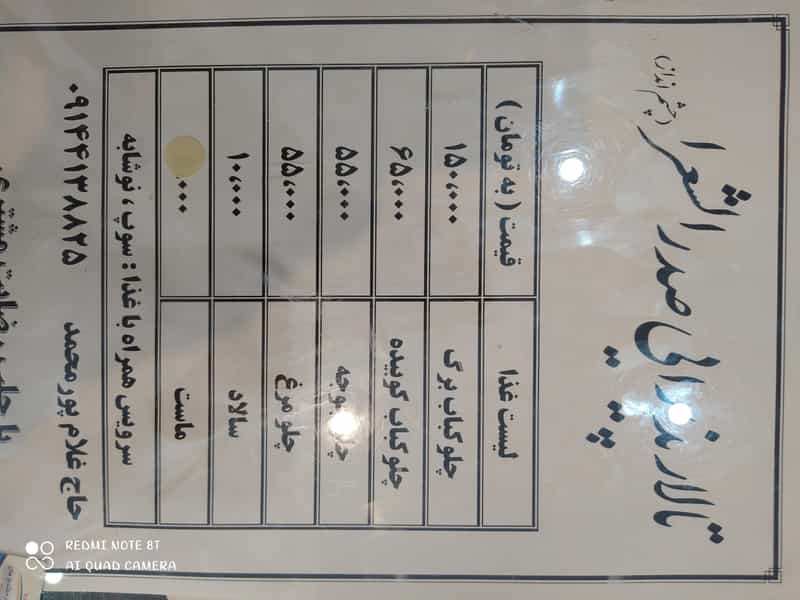 تالار پذیرایی صدرالشعرا
(چشم انداز)
لیست غذا قیمت ( به تومان )
چلوکباب برگ ۱۵۰،۰۰۰
چلوکباب کوبیده ۶۵،۰۰۰
جوجه ۵۵،۰۰۰
چلو مرغ ۵۵،۰۰۰
سالاد ۱۰،۰۰۰
ماست ۰۰۰
سرویس همراه با غذا : سوپ ، نوشابه
حاج غلام پور محمد ۰۹۱۴۴۱۳۸۸۲۵
REDMI NOTE 8T
AI QUAD CAMERA